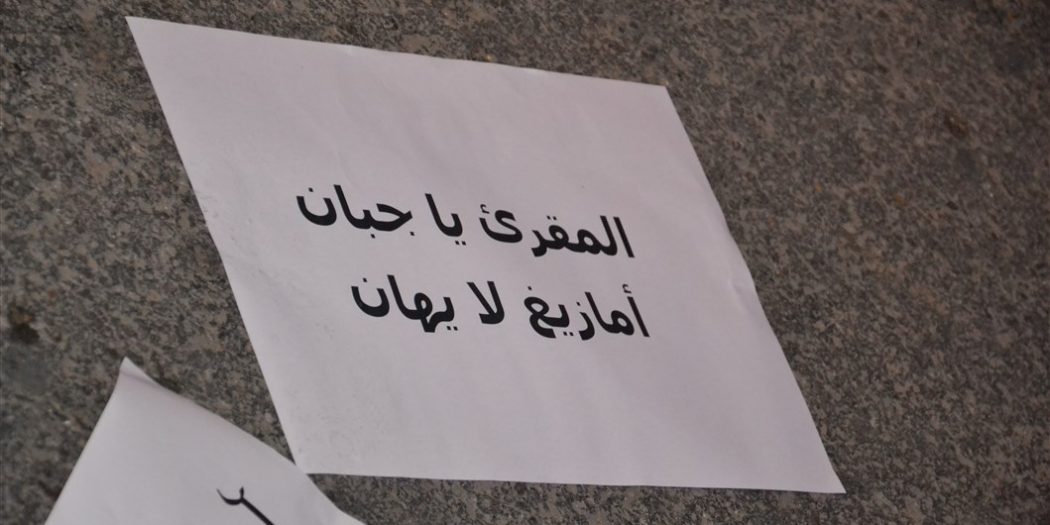 المقرئ يا جبان
أمازيغ لا يهان